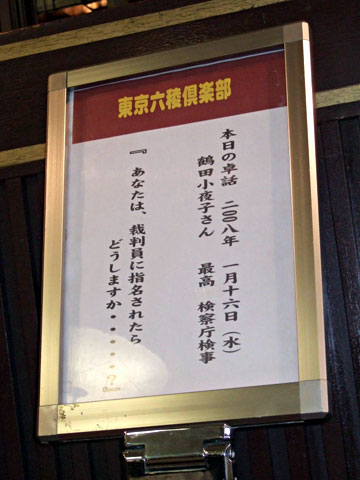 東京六稜倶楽部
本日の卓話 二〇〇八年 一月十六日（水）
鶴田小夜子さん 最高 検察庁検事
『あなたは、裁判員に指名されたら
どうしますか・・・・・・？』